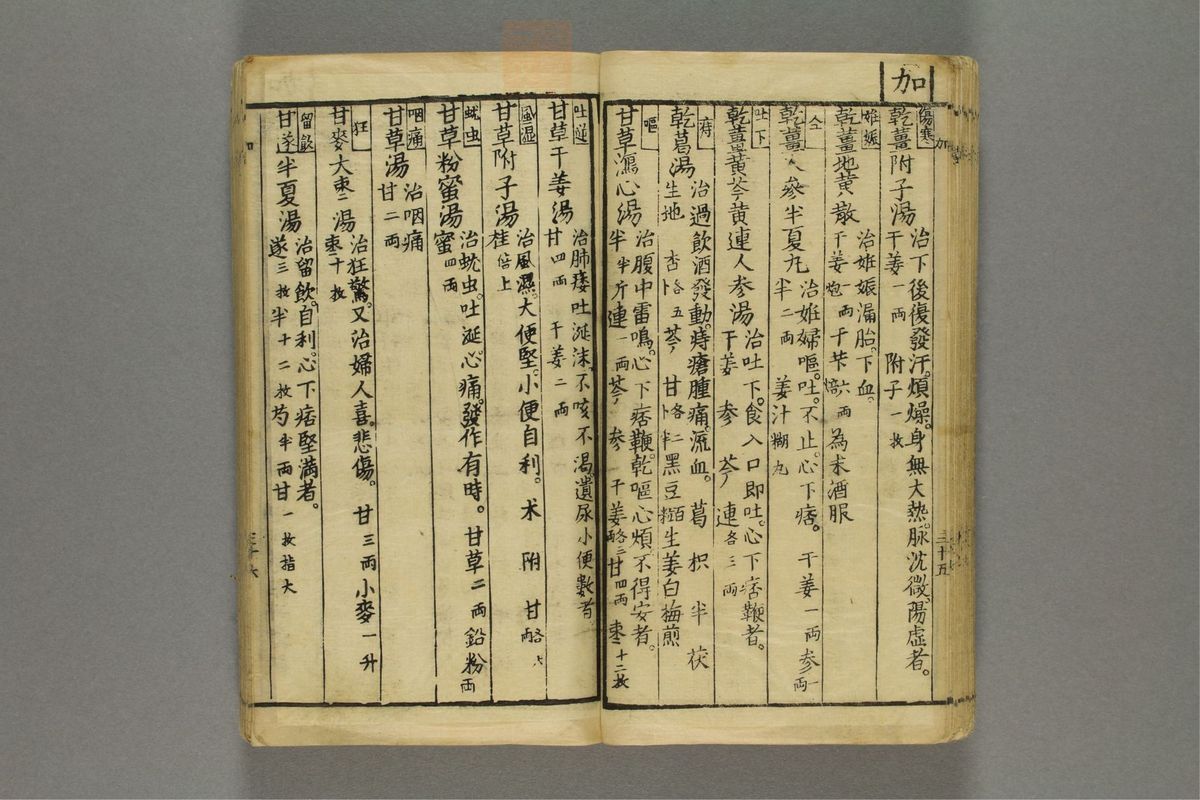 加
傷寒
乾薑附子湯
治下後復發汗。煩燥。身無大熱。脉沈微。陽虚者。
干姜一両 附子一枚
妊娠
乾薑地黄散
治妊娠漏胎。下血。
干姜炮一両干芐焙六両為末酒服
仝
乾薑人參半夏丸
治妊婦嘔。吐。不止。心下痞。干姜一両参一両
半二両 姜汁糊丸
吐下
乾薑黄芩黄連人参湯
治吐下。食入口即吐。心下痞鞕者。
干姜 参 芩 連各三両
痔
乾葛湯
治過飲酒發動。痔瘡腫痛。流血。葛枳半茯
生地 杏各五芩 甘各二黒豆百粒生姜白梅煎
嘔
甘草瀉心湯
治腹中雷鳴。心下痞鞕。乾嘔心煩不得安者。
半半斤連一両芩 参 干姜各三両甘四両棗十二枚
三十五
吐涎
甘草干姜湯
治肺痿吐涎沫。不咳不渇。遺尿小便數者。
甘四両 干姜二両
風湿
甘草附子湯
治風濕。大便堅。小便自利。术 附 甘各六両
桂倍上
蚘虫
甘草粉蜜湯
治蚘虫。吐涎心痛。發作有時。甘草二両鉛粉一両
蜜四両
咽痛
甘草湯
治咽痛
甘二両
狂
甘麥大棗湯
治狂驚。又治婦人喜。悲傷。甘三両小麥一升
棗十枚
留飲
甘遂半夏湯
治留飲。自利。心下痞堅満者。
遂三枚半十二枚芍半両甘一枚指大
三十六